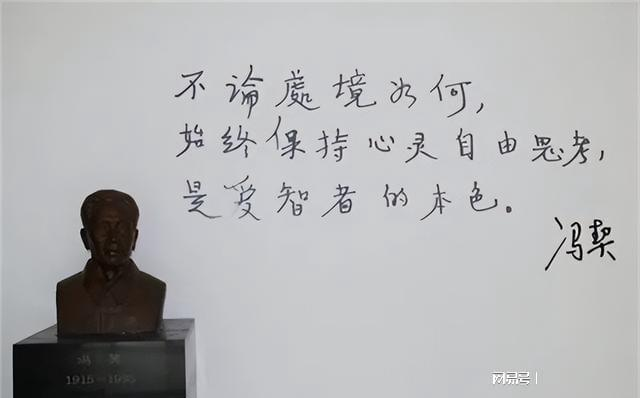 不論處境如何，
始终保持心灵自由思考，
是爱智者的本色。
冯契
冯契
1915－1995
网易号